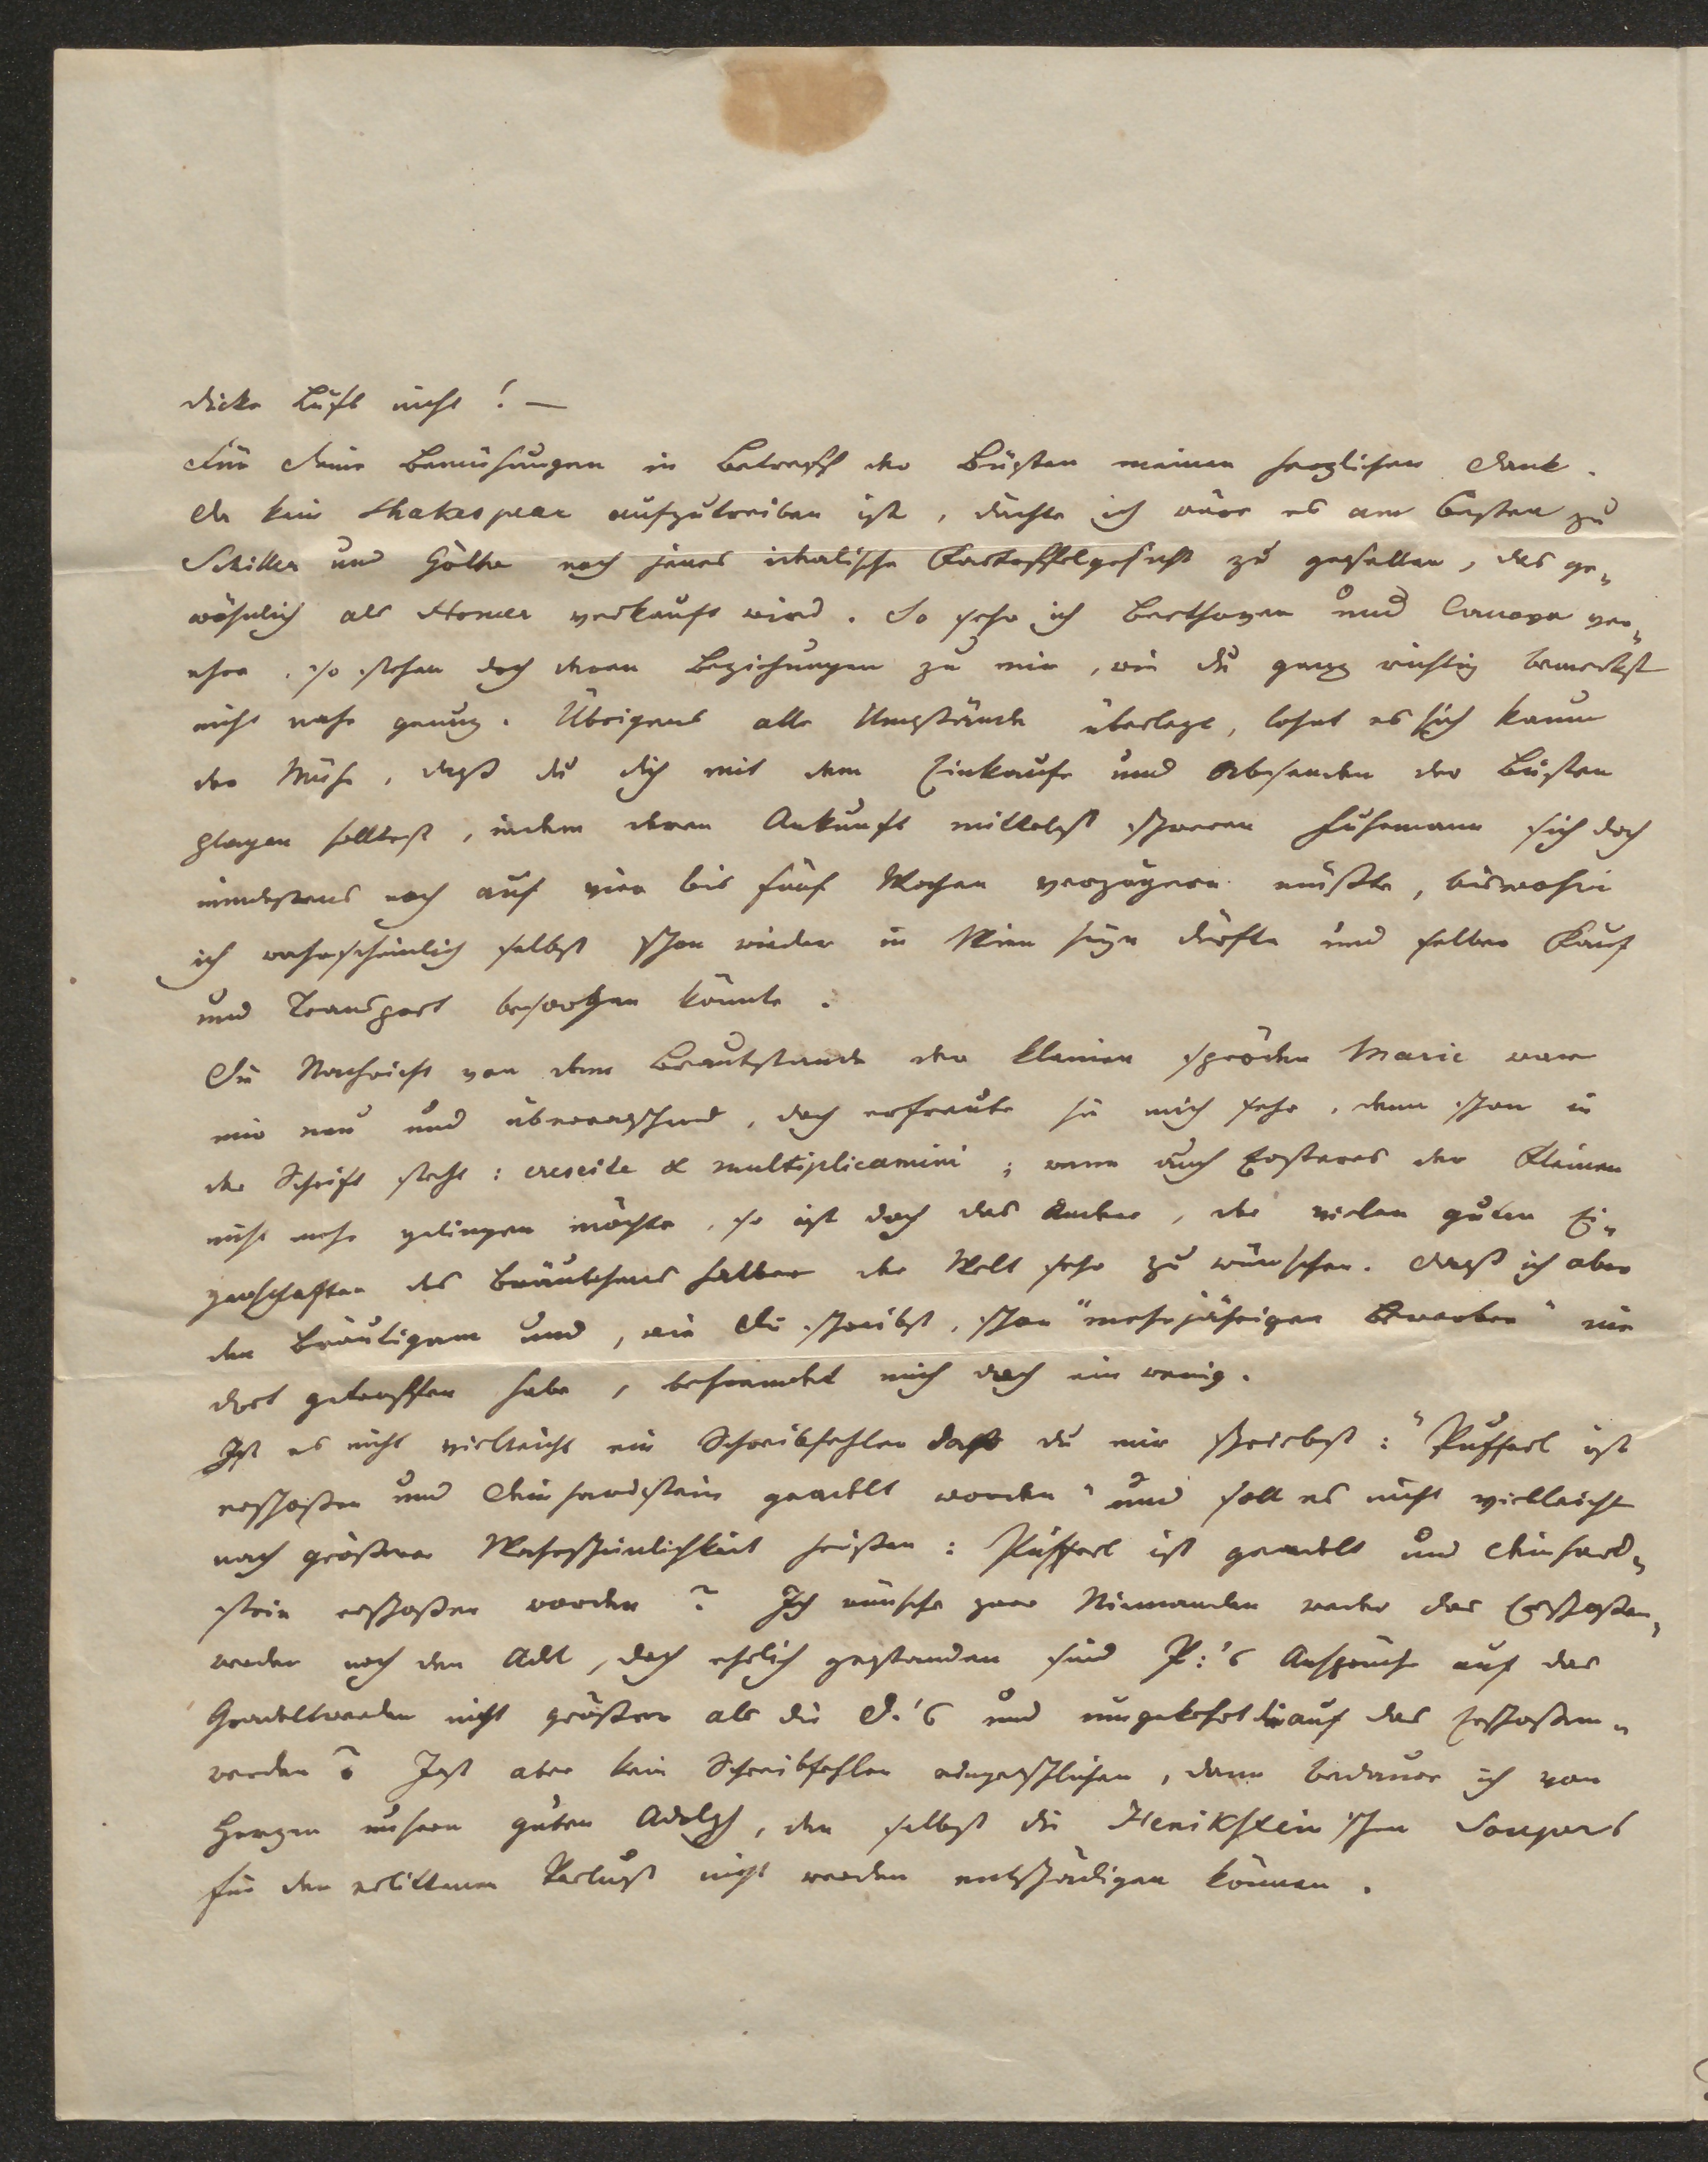 dicke Luft nicht! —
Für Deine Bemühungen in Betreff der Büsten meinen herzlichen Dank.
Da kein Shakespear aufzutreiben ist, dächte ich wäre es am besten zu
Schiller und Göthe noch jenes idealische Kartoffelgesicht zu gesellen, das ge-
wöhnlich als Homer verkauft wird. So sehr ich Beethoven und Canova ver-
ehre, so stehen doch deren Beziehungen zu mir, wie du ganz richtig bemerkst
nicht nahe genug. Übrigens alle Umstände überlegt, lohnt es sich kaum
der Mühe, daß du dich mit dem Einkaufe und Absenden der Büsten
plagen solltest, indem deren Ankunft mittelst schweren Fuhrmann sich doch
mindestens noch auf vier bis fünf Wochen verzögern müßte, bis wohin
ich wahrscheinlich selbst schon wieder in Wien seyn dürfte und selber Kauf
und Transport besorgen könnte.
Die Nachricht von dem Brautstande der kleinen spröden Marie war
mir neu und überraschend, doch erfreute sie mich sehr, denn schon in
der Schrift steht: crescite & multiplicamini; wenn auch Ersteres der Kleinen
nicht mehr gelingen möchte, so ist doch das Andere, der vielen guten Ei-
genschaften des Bräutchens halber der Welt sehr zu wünschen. Daß ich aber
den Bräutigam und, wie Du schreibst, schon "mehrjährigen Bewerber" nie
dort getroffen habe, befremdet mich doch ein wenig.
Ist es nicht vielleicht ein Schreibfehler daß du mir schreibst: "Pufferl ist
erschoßen und Deinhardstein geadelt worden" und soll es nicht vielleicht
nach größerer Wahrscheinlichkeit heißen: Pufferl ist geadelt und Deinhard-
stein erschoßen worden? Ich wünsche zwar Niemanden weder das Erschoßen-
werden noch den Adel, doch ehrlich gestanden sind P.'s Ansprüche auf das
Geadeltwerden nicht größer als die D.'s und umgekehrt die auf das Erschoßen-
werden? Ist aber kein Schreibfehler eingeschlichen, dann bedaure ich von
Herzen unsern guten Adolph, den selbst die Henikstein'schen Soupers
für den erlittenen Verlust nicht werden entschädigen können.